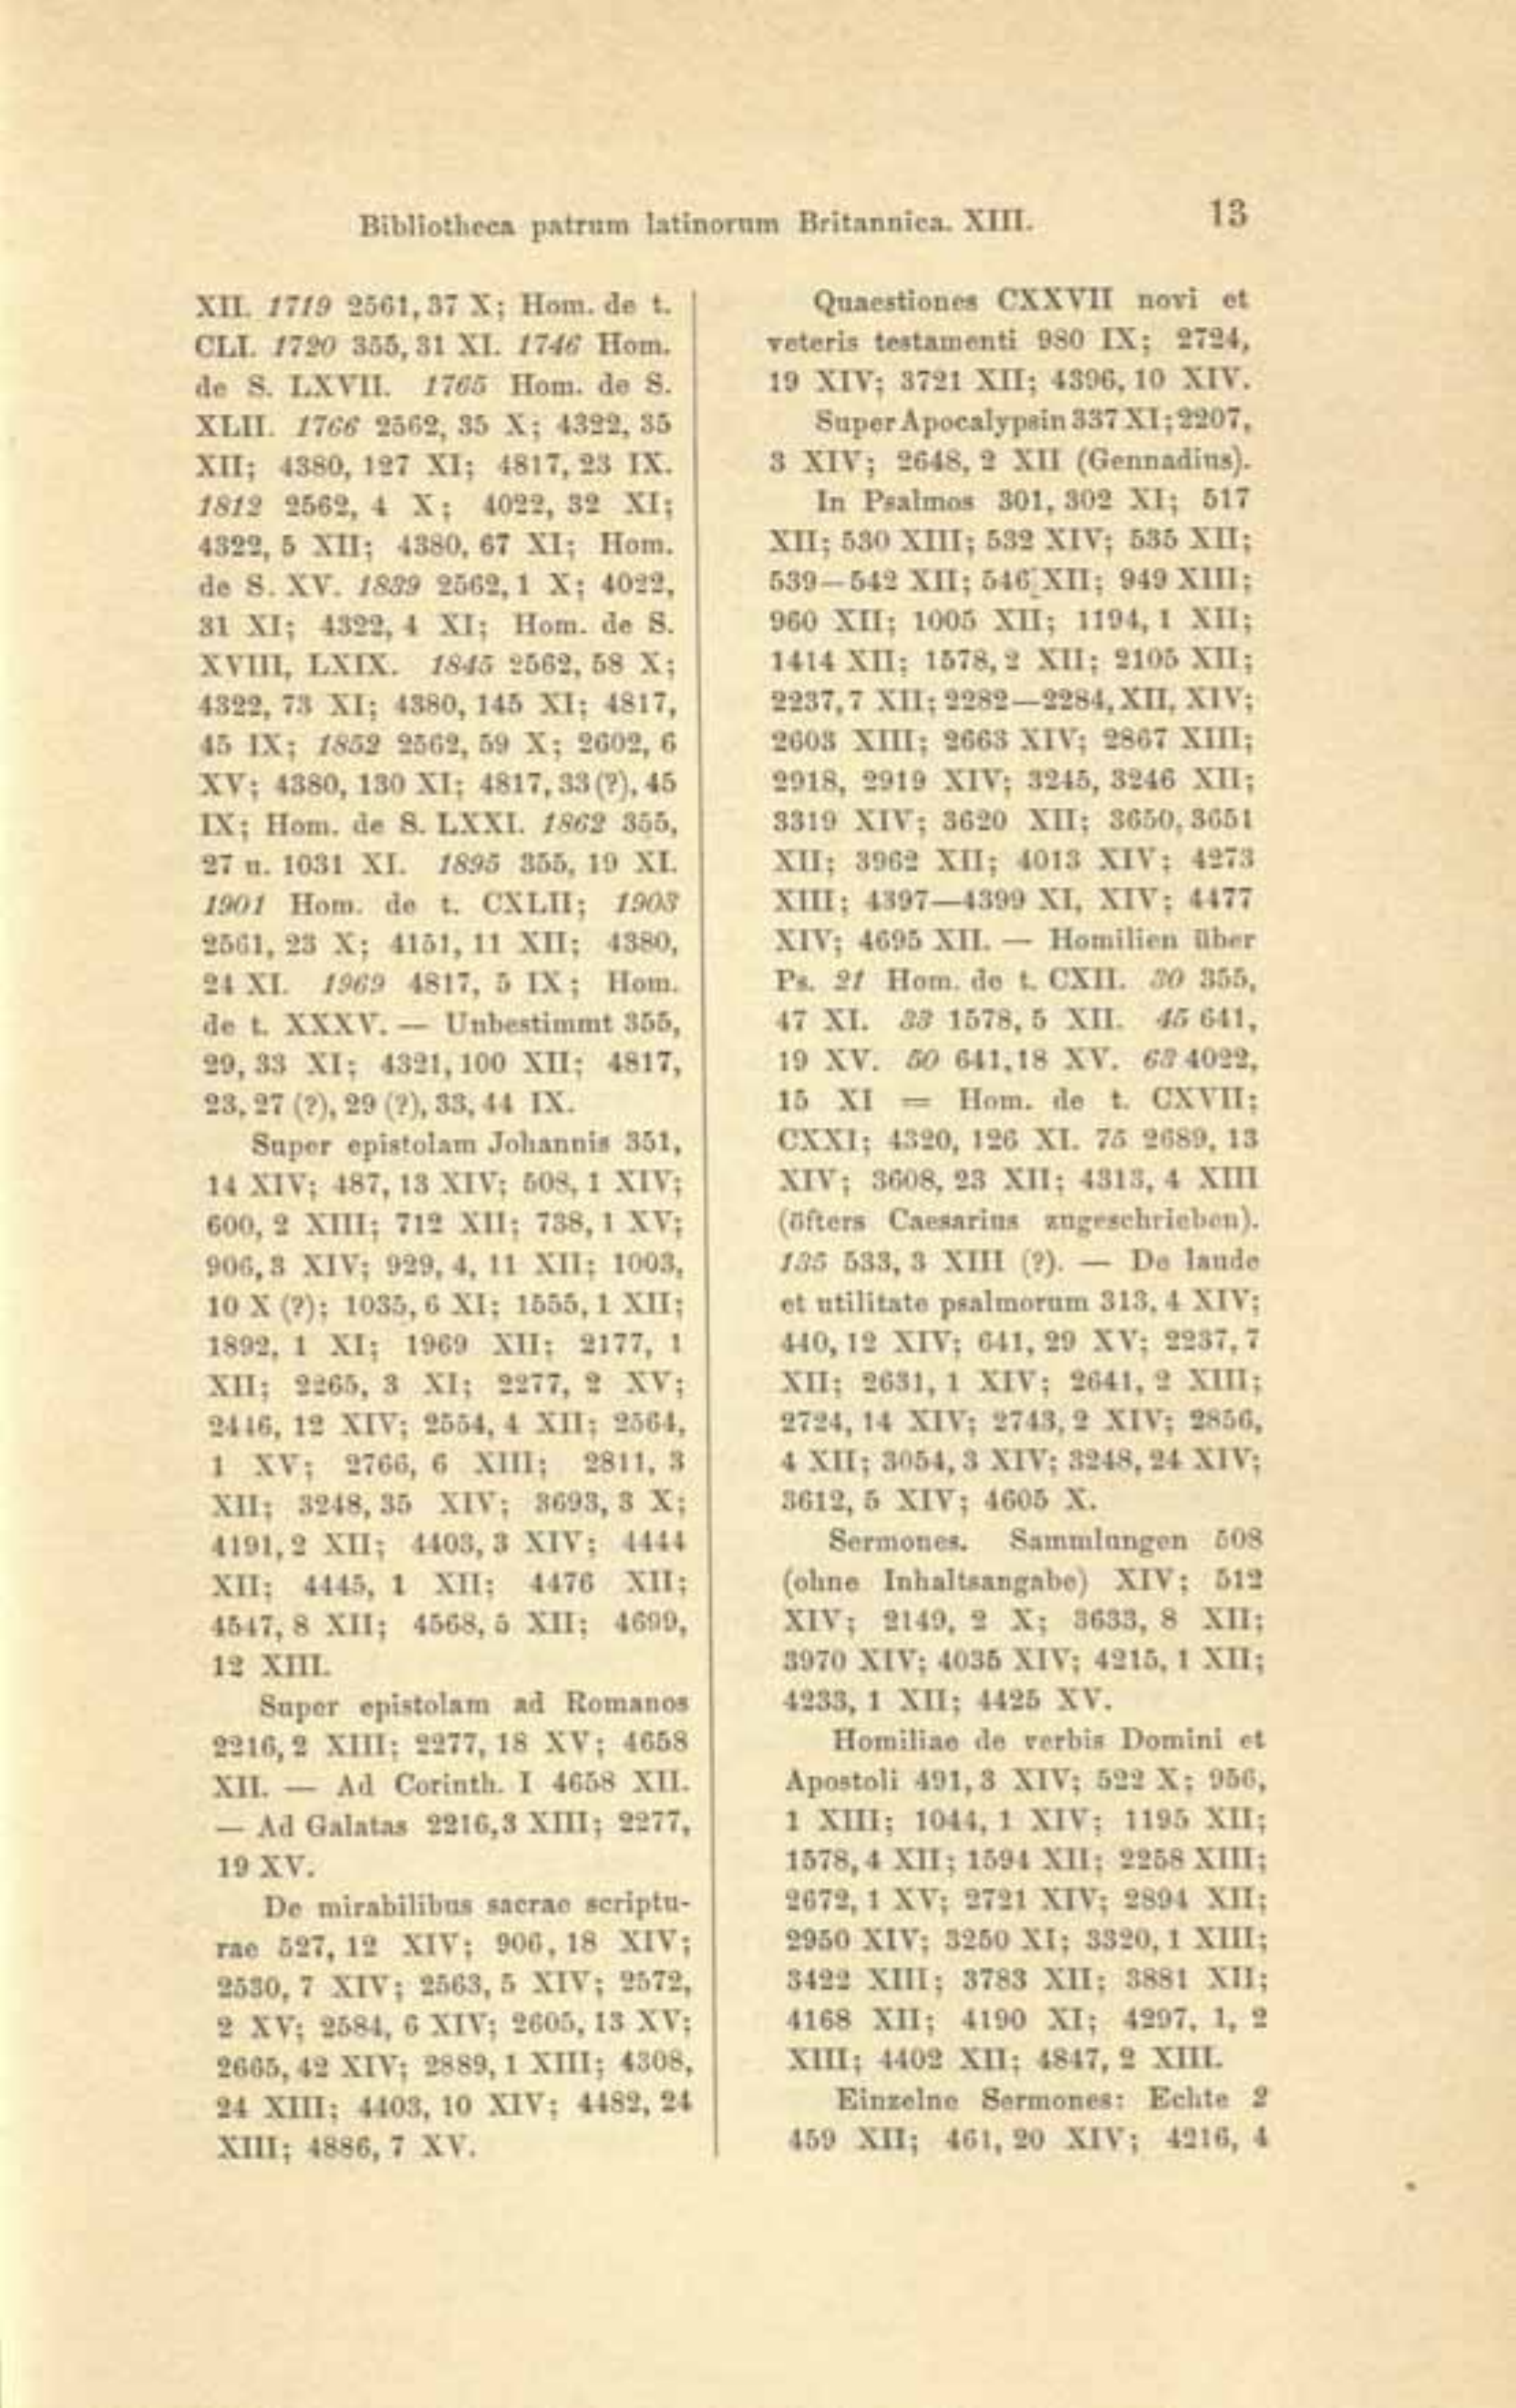 Bibliotheca patrum latinorum Britannica. XIII. 13
XII. 1719 2561, 37 X; Hom. de t.
CLI. 1720 355, 31 XI. 1746 Hom.
de S. LXVII. 1765 Hom. de S.
XLII. 1766 2562, 35 X; 4322, 35
XII; 4380, 127 XI; 4817, 23 IX.
1812 2562, 4 X; 4022, 32 XI;
4322, 5 XII; 4380, 67 XI; Hom.
de S. XV. 1839 2562, 1 X; 4022,
31 XI; 4322, 4 XI; Hom. de S.
XVIII, LXIX. 1845 2562, 58 X;
4322, 73 XI; 4380, 145 XI; 4817,
45 IX; 1852 2562, 59 X; 2602, 6
XV; 4380, 130 XI; 4817, 33 (?), 45
IX; Hom. de S. LXXI. 1862 355,
27 u. 1031 XI. 1895 355, 19 XI.
1901 Hom. de t. CXLII; 1903
2561, 23 X; 4151, 11 XII; 4380,
24 XI. 1969 4817, 5 IX; Hom.
de t. XXXV. — Unbestimmt 355,
29, 33 XI; 4321, 100 XII; 4817,
23, 27 (?), 29 (?), 33, 44 IX.
Super epistolam Johannis 351,
14 XIV; 487, 13 XIV; 508, 1 XIV;
600, 2 XIII; 712 XII; 738, 1 XV;
906, 3 XIV; 929, 4, 11 XII; 1003,
10 X (?); 1035, 6 XI; 1555, 1 XII;
1892, 1 XI; 1969 XII; 2177, 1
XII; 2265, 3 XI; 2277, 2 XV;
2446, 12 XIV; 2554, 4 XII; 2564,
1 XV; 2766, 6 XIII; 2811, 3
XII; 3248, 35 XIV; 3693, 3 X;
4191, 2 XII; 4403, 3 XIV; 4444
XII; 4445, 1 XII; 4476 XII;
4547, 8 XII; 4568, 5 XII; 4699,
12 XIII.
Super epistolam ad Romanos
2216, 2 XIII; 2277, 18 XV; 4658
XII. — Ad Corinth. I 4658 XII.
— Ad Galatas 2216, 3 XIII; 2277,
19 XV.
De mirabilibus sacrae scriptu-
rae 527, 12 XIV; 906, 18 XIV;
2530, 7 XIV; 2563, 5 XIV; 2572,
2 XV; 2584, 6 XIV; 2605, 13 XV;
2665, 42 XIV; 2889, 1 XIII; 4308,
24 XIII; 4403, 10 XIV; 4482, 24
XIII; 4886, 7 XV.
Quaestiones CXXVII novi et
veteris testamenti 980 IX; 2724,
19 XIV; 3721 XII; 4396, 10 XIV.
Super Apocalypsin 337 XI; 2207,
3 XIV; 2648, 2 XII (Gennadius).
In Psalmos 301, 302 XI; 517
XII; 530 XIII; 532 XIV; 535 XII;
539—542 XII; 546 XII; 949 XIII;
960 XII; 1005 XII; 1194, 1 XII;
1414 XII; 1578, 2 XII; 2105 XII;
2237, 7 XII; 2282—2284, XII, XIV;
2603 XIII; 2663 XIV; 2867 XIII;
2918, 2919 XIV; 3245, 3246 XII;
3319 XIV; 3620 XII; 3650, 3651
XII; 3962 XII; 4013 XIV; 4273
XIII; 4397—4399 XI, XIV; 4477
XIV; 4695 XII. — Homilien über
Ps. 21 Hom. de t. CXII. 30 355,
47 XI. 33 1578, 5 XII. 45 641,
19 XV. 50 641, 18 XV. 63 4022,
15 XI = Hom. de t. CXVII;
CXXI; 4320, 126 XI. 75 2689, 13
XIV; 3608, 23 XII; 4313, 4 XIII
(öfters Caesarius zugeschrieben).
135 533, 3 XIII (?). — De laude
et utilitate psalmorum 313, 4 XIV;
440, 12 XIV; 641, 29 XV; 2237, 7
XII; 2631, 1 XIV; 2641, 2 XIII;
2724, 14 XIV; 2743, 2 XIV; 2856,
4 XII; 3054, 3 XIV; 3248, 24 XIV;
3612, 5 XIV; 4605 X.
Sermones. Sammlungen 508
(ohne Inhaltsangabe) XIV; 512
XIV; 2149, 2 X; 3633, 8 XII;
3970 XIV; 4035 XIV; 4215, 1 XII;
4233, 1 XII; 4425 XV.
Homiliae de verbis Domini et
Apostoli 491, 3 XIV; 522 X; 956,
1 XIII; 1044, 1 XIV; 1195 XII;
1578, 4 XII; 1594 XII; 2258 XIII;
2672, 1 XV; 2721 XIV; 2894 XII;
2950 XIV; 3250 XI; 3320, 1 XIII;
3422 XIII; 3783 XII; 3881 XII;
4168 XII; 4190 XI; 4297, 1, 2
XIII; 4402 XII; 4847, 2 XIII.
Einzelne Sermones: Echte 2
459 XII; 461, 20 XIV; 4216, 4